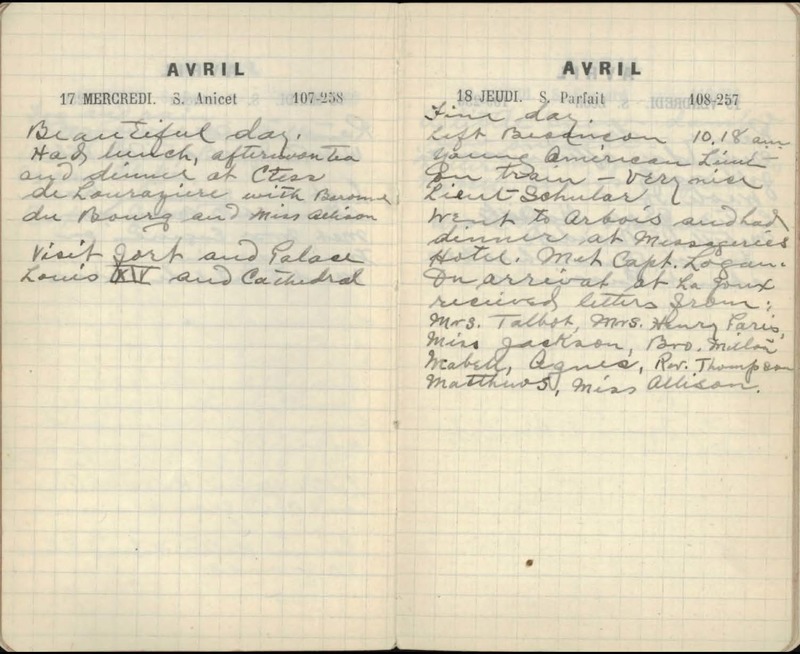 AVRIL
17 MERCREDI. S. Anicet 107-258
Beautiful day.
Had lunch, afternoon tea
and dinner at Ctess
de Louraziere with Baronne
du Bourg and Miss Allison
Visit fort and Palace
Louis XIV and Cathedral
AVRIL
18 JEUDI. S. Parfait 108-257
Fine day.
Left Besancon 10.18 am
Young American Lieut-
on train - very nice
Lieut Schular!
Went to Arbois and had
dinner at Messageries
Hotel. Met Capt. Logan.
On arrival at La Joux
received letters from:
Mrs. Talbot, Mrs. Henry Paris,
Miss Jackson, Bro. Milton
Mabell, Agnes, Rev. Thompson
Matthews, Miss Allison.